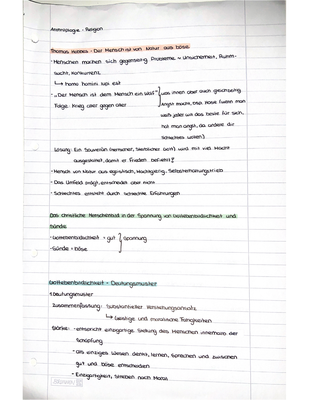 Anthropologie - Religion
Thomas Hobbes - Der Mensch ist von Natur aus böse
- Menschen machen sich gegenseitig Probleme → Unsicherheit, Ruhm-
sucht, Konkurrenz
↳ homo homini lupus est
- "Der Mensch ist dem Mensch ein Wolf"
was ihnen aber auch gleichzeitig
Folge: Krieg aller gegen aller
Angst macht,
weiß jeder will das beste für sich,
hat man angst, da andere dir
schlechtes wollen)
Lösung: Ein Souverän (Herrscher, sterblicher Gott) wird mit viel Macht
ausgestattet, damit er Frieden befiehlt!
- Mensch von Natur aus egoistisch, Machtgierig, Selbsterhaltungstrieb
- Das Umfeld prägt, entscheidet aber nicht
- Schlechtes entsteht durch schlechte Erfahrungen
Das christliche Menschenbild in der Spannung von Gottebenbildlichkeit und
Sünde
- Gottebenbildlichkeit = gut
- Sünde = böse
Spannung
Gottebenbildlichkeit - Deutungsmuster
1. Deutungsmuster
Zusammenfassung: Substantieller Verstehensansatz
↳ geistige und moralische Fähigkeiten
Stärke: - entspricht einzigartige Stellung des Menschen innerhalb der
Schöpfung
- als einziges Wesen denkt, lernen, sprechen und zwischen
gut und böse entscheiden
- Einzigartigkeit, Streben nach Moral